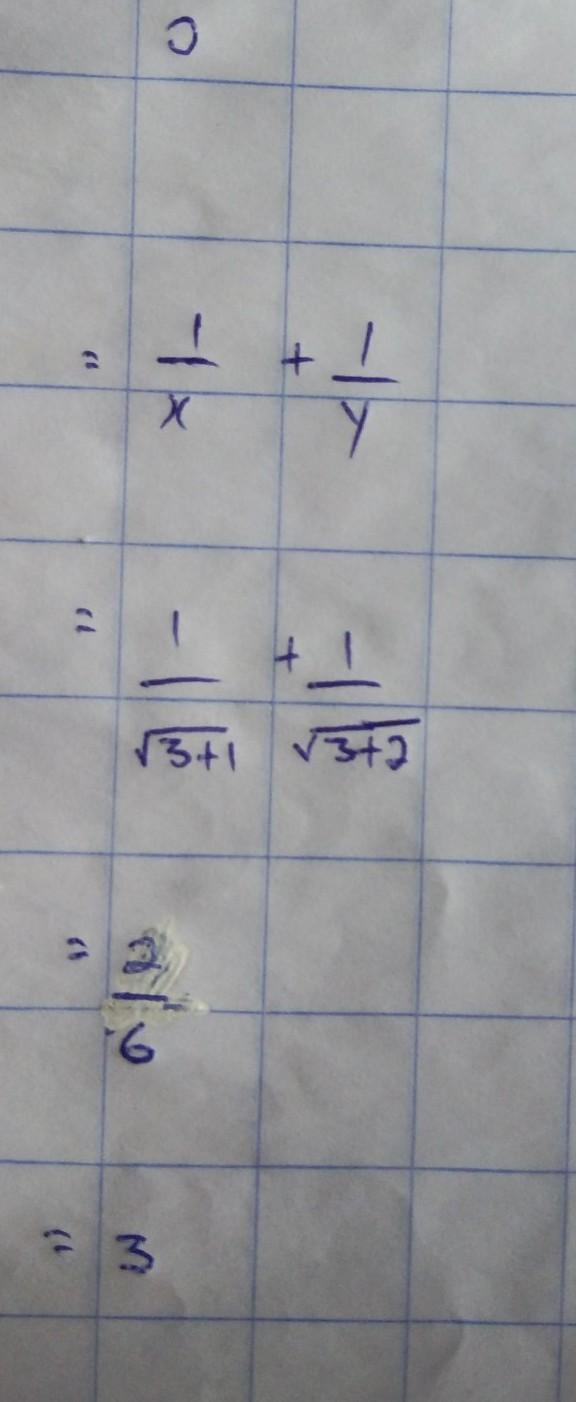 0
= 1/x + 1/y
= 1/√(3+1) + 1/√(3+2)
= 2/6
= 3